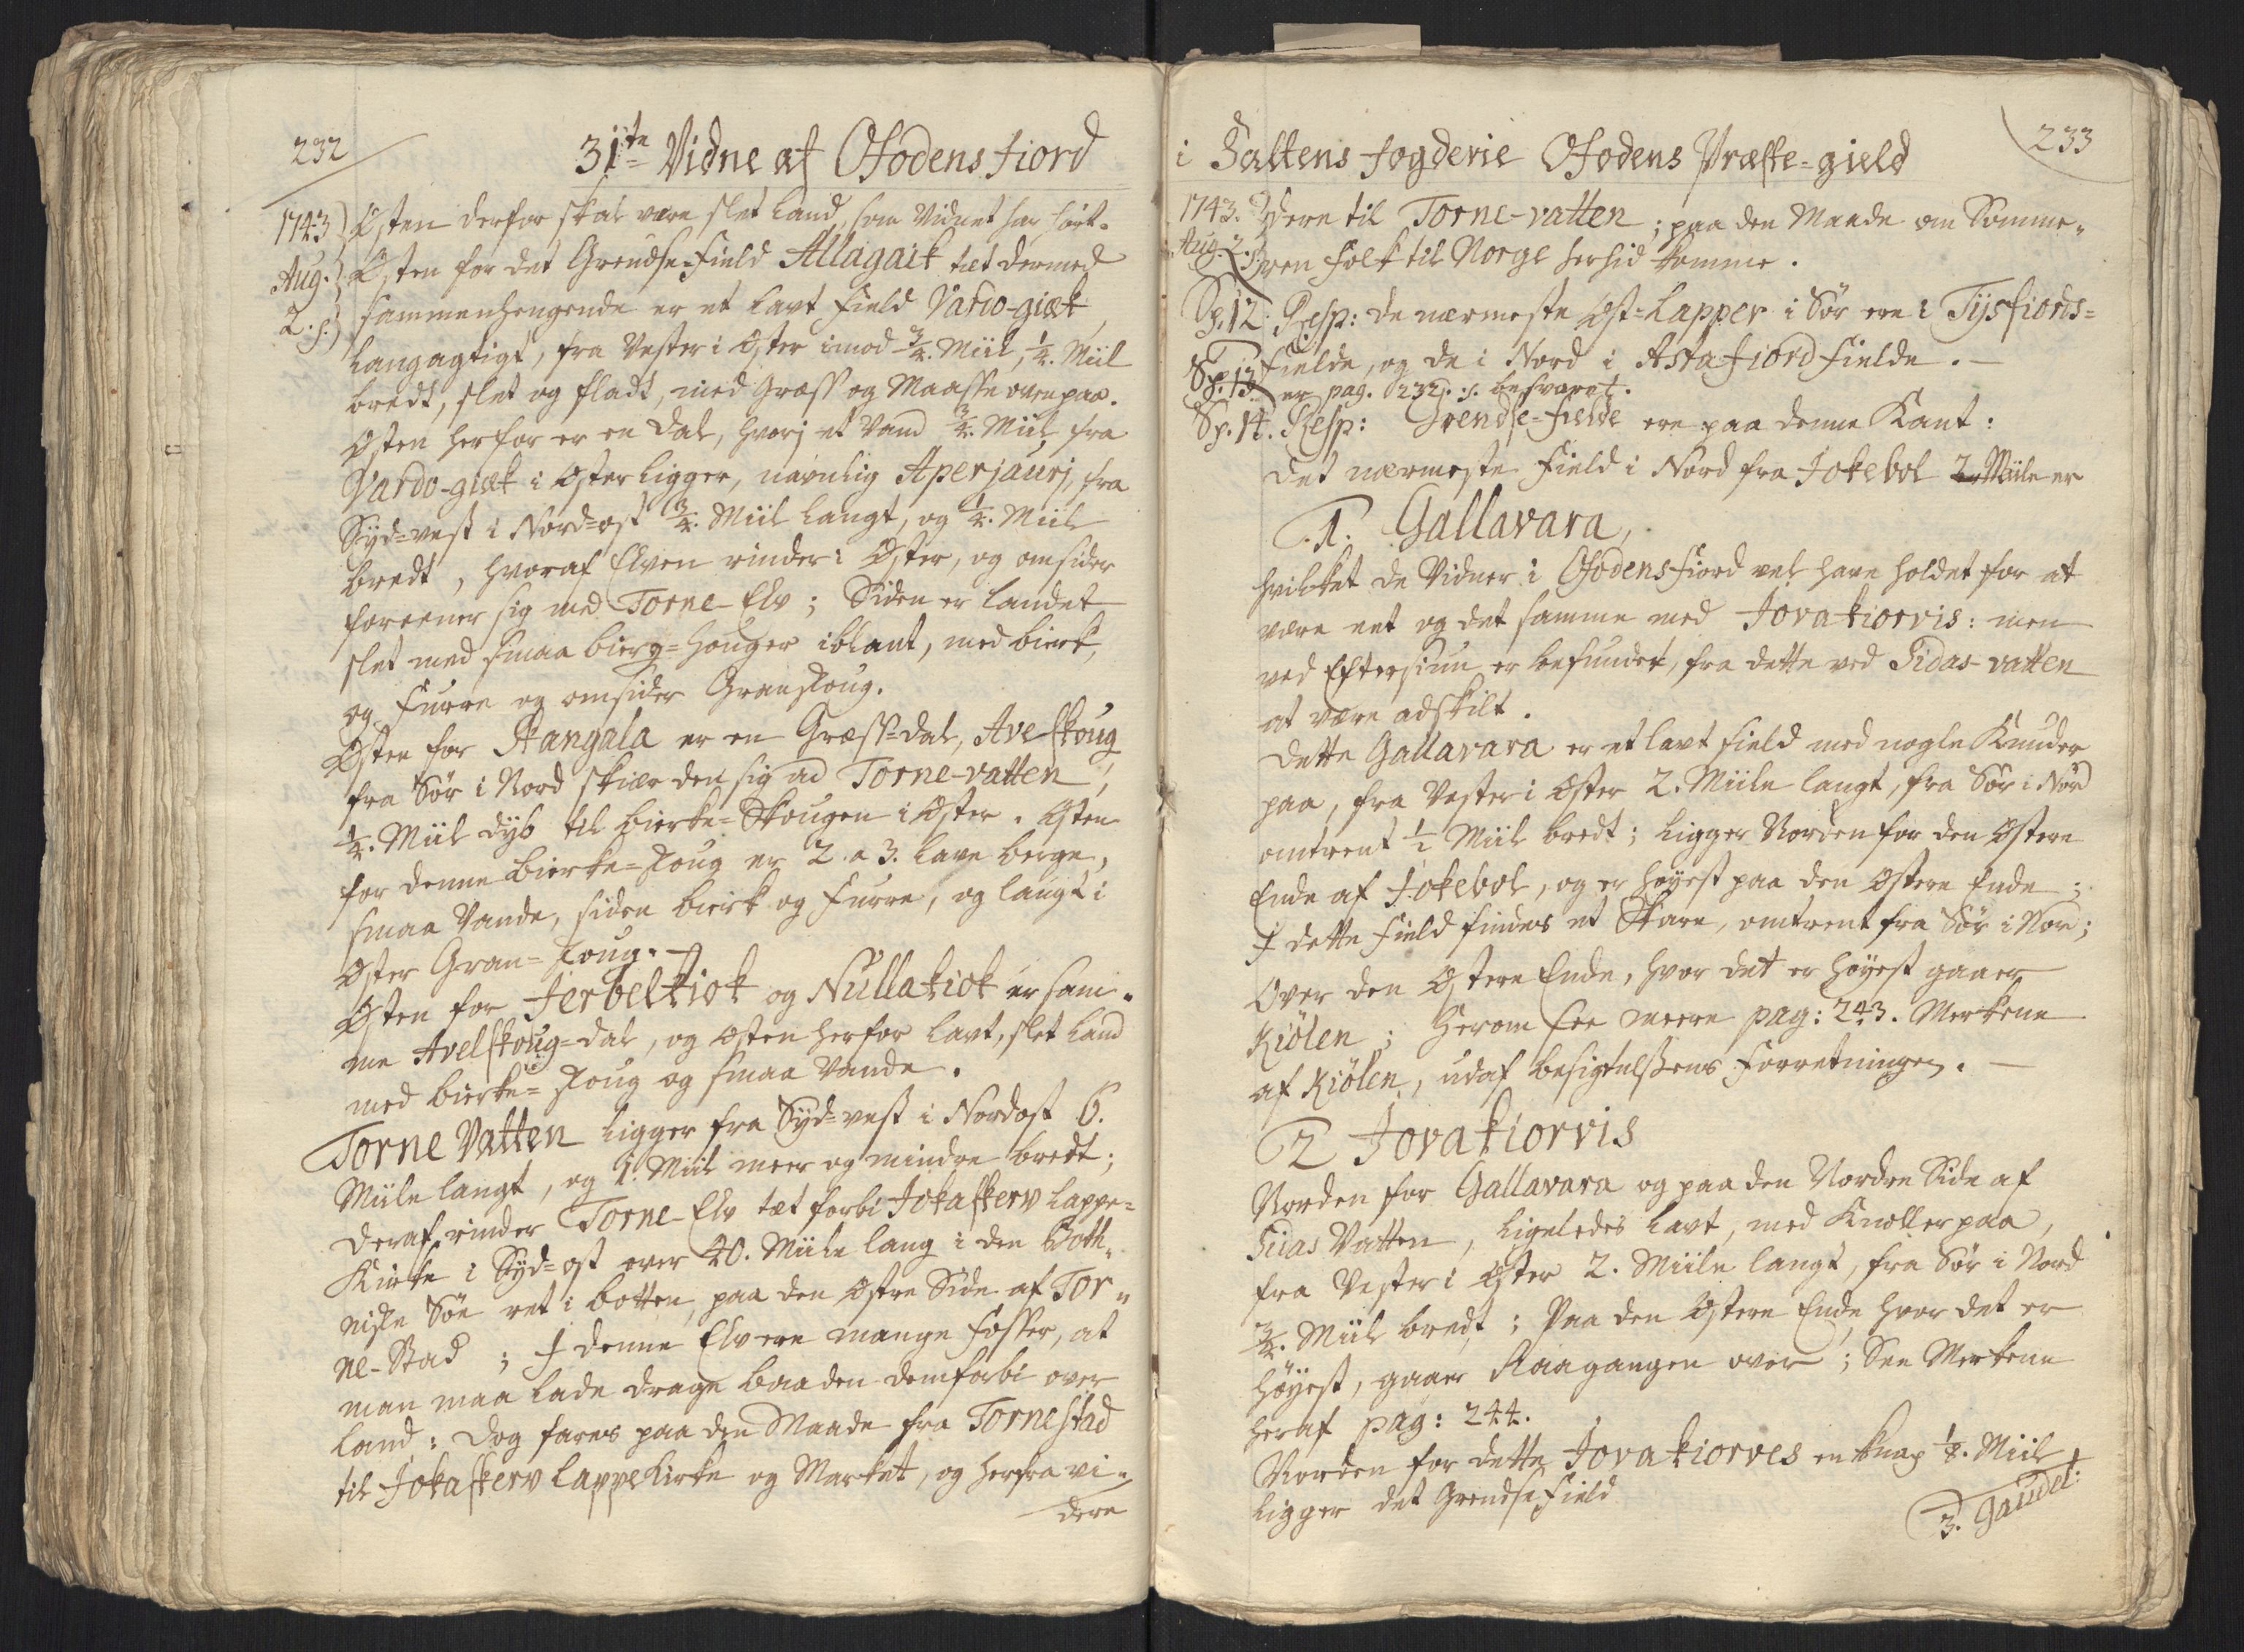 232
31te Vidne af Ofodens Fiord
1743
Aug.
2. s.
Østen derfor skal være slet Land, som Vidnet har hørt.
Østen for det Grendse-Field Allagaik tæt dermed
sammenhengende er et lavt Field Vardo-giæk
langagtigt, fra Vester i Øster imod 3/4. Miil, 1/4. Miil
bredt, slet og fladt, med Græss og Maasse oven paa.
Østen herfor er en Dal, hvorj et Vand 3/4. Miil fra
Vardo-giæk i Øster ligger, navnlig Aperjaurj, fra
Syd-vest i Nord-ost 3/4. Miil langt, og 1/4. Miil
bredt, hvoraf Elven rinder i Øster, og omsider
foreener sig med Torne-Elv; Siden er Landet
slet med smaa bierg-houger iblant, med birk,
og Furre og omsider Granskoug.
Østen for Rangala er en Græss-dal, Avelskoug
fra Sør i Nord skiær den sig ad Torne-vatten,
1/4. Miil dyb til bierke-Skougen i Øster. Østen
for denne bierke-skoug er 2. a 3. lave berge,
smaa Vande, siden birk og Furre, og langt i
Øster Gran-skoug.
Østen for Jerbeltiok og Nullatiok er sam-
me Avelskoug-dal, og Østen herfor lavt, slet Land
med bierke-skoug og smaa Vande.
Torne Vatten ligger fra Syd-vest i Nordost 6.
Miile langt, og 1. Miil meer og mindre bredt;
deraf rinder Torne-Elv tæt forbi Jokaskerv Lappe-
Kirke i Syd-ost over 40. Miile lang i den Both-
niske Søe ret i botten, paa den Østre Side af Tor-
ne-Stad; I denne Elv ere mange Fosser, at
man maa lade drage baaden dem forbi over
Land: Dog fares paa den Maade fra Tornestad
til Jokaskerv Lappe Kirke og Market, og herfra vi-
dere
233
i Saltens Fogderie Ofodens Præste-gield
1743.
Aug. 2. s.
dere til Torne-vatten; paa den Maade om Somme-
ren Folk til Norge herhid komme.
Sp. 12. Resp: de nærmeste Øst-Lapper i Sør ere i Tysfiords-
Fielde, og de i Nord i Astafiord Fielde.
Sp. 13. er pag. 232. s. besvaret.
Sp. 14. Resp: Grendse-Fielde ere paa denne Kant:
Det nærmeste Field i Nord fra Jokebol 2 Miile er
1. Gallavara,
hvilket de Vidner i Ofodensfiord vel have holdet for at
være eet og det samme med Jovakiorvis: men
ved Eftersiun er befundet, fra dette ved Sidas-vatten
at være adskilt.
Dette Gallavara er et lavt Field med nogle Knuder
paa, fra Vester i Øster 2. Miile langt, fra Sør i Nord
omtrent 1/2 Miil bredt; ligger Norden for den Østere
Ende af Jokebol, og er høyest paa den Østere Ende;
I dette Field findes et Skare, omtrent fra Sør i Nor;
Over den Østere Ende, hvor det er høyest gaaer
Kiølen; Herom see meere pag: 243. Merkene
af Kiølen, udaf besigtelssens Forretningen.
2 Jovakiorvis
Norden for Gallavara og paa den Nordre Side af
Sidas Vatten, ligeledes lavt, med Knoller paa,
fra Vester i Øster 2. Miile langt, fra Sør i Nord
3/4. Miil bredt; Paa den Østere Ende hvor det er
høyest, gaaer Raagangen over; See Merkene
heraf pag: 244.
Norden for dette Jovakiorves en knap 1/8. Miil
ligger det Grendse Field
3. Gaudel: